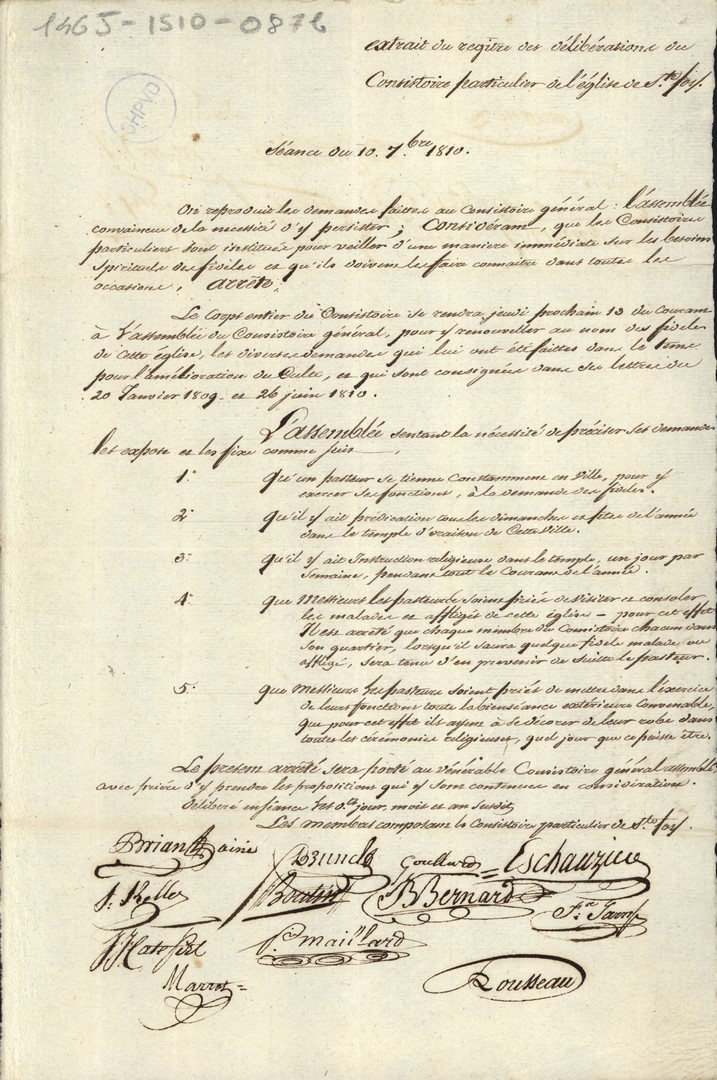 1465-1510-087b
GHPVD
extrait du regitre des délibérations du
Consistoire particulier de l'église de S.te foy.
Séance du 10. 7.bre 1810.
On reproduit les demandes faittes au Consistoire général : l'assemblée
convaincue de la nécessité d'y persister ; Considérant, que les Consistoires
particuliers sont institués pour veiller d'une maniere immédiate sur les besoins
spirituels des fidèles et qu'ils doivent les faire connaitre dans toutes les
occasions, arrête :
Le Corps entier du Consistoire se rendra jeudi prochain 13 du courant
à l'assemblée du Consistoire général, pour y renouveller au nom des fidèles
de cette église, les diverses demandes qui lui ont été faittes dans le tems
pour l'amélioration du Culte, et qui sont consignées dans ses lettres du
20 Janvier 1809 et 26 juin 1810.
L'assemblée sentant la nécessité de préciser ses demandes
les expose et les fixe comme suit,
1.° qu'un pasteur se tienne Constamment en Ville, pour y
exercer ses fonctions, à la demande des fidèles.
2.° qu'il y ait prédication tous les dimanches et fêtes de l'année
dans le temple d'oraison de Cette Ville.
3.° qu'il y ait Instruction religieuse dans le temple, un jour par
semaine, pendant tout le Courant de l'année.
4.° que Messieurs les pasteurs soient priés de visiter et consoler
les malades et affligés de cette église - pour cet effet
Il est arrêté que chaque membre du Consistoire chacun dans
son quartier, lorsqu'il saura quelque fidèle malade ou
affligé, sera tenu d'en prevenir de suitte le pasteur.
5.° que Messieurs les pasteurs soient priés de mettre dans l'exercice
de leurs fonctions toute la bienséance extérieure Convenable,
que pour cet effet ils ayent à se décorer de leur robe dans
toutes les cérémonies religieuses, quel jour que ce puisse être.
Le présent arrêté sera porté au Vénérable Consistoire général assemblé
avec prière d'y prendre les propositions qui y sont contenues en considération.
délibéré en séance les d.ts jour, mois et an susdit,
Les membres composant le Consistoire particulier de S.te foy.
Briand ainé
Goulard
Eschauzier
Boutin
B Bernard
P.re maillard
Marrot
Rousseau